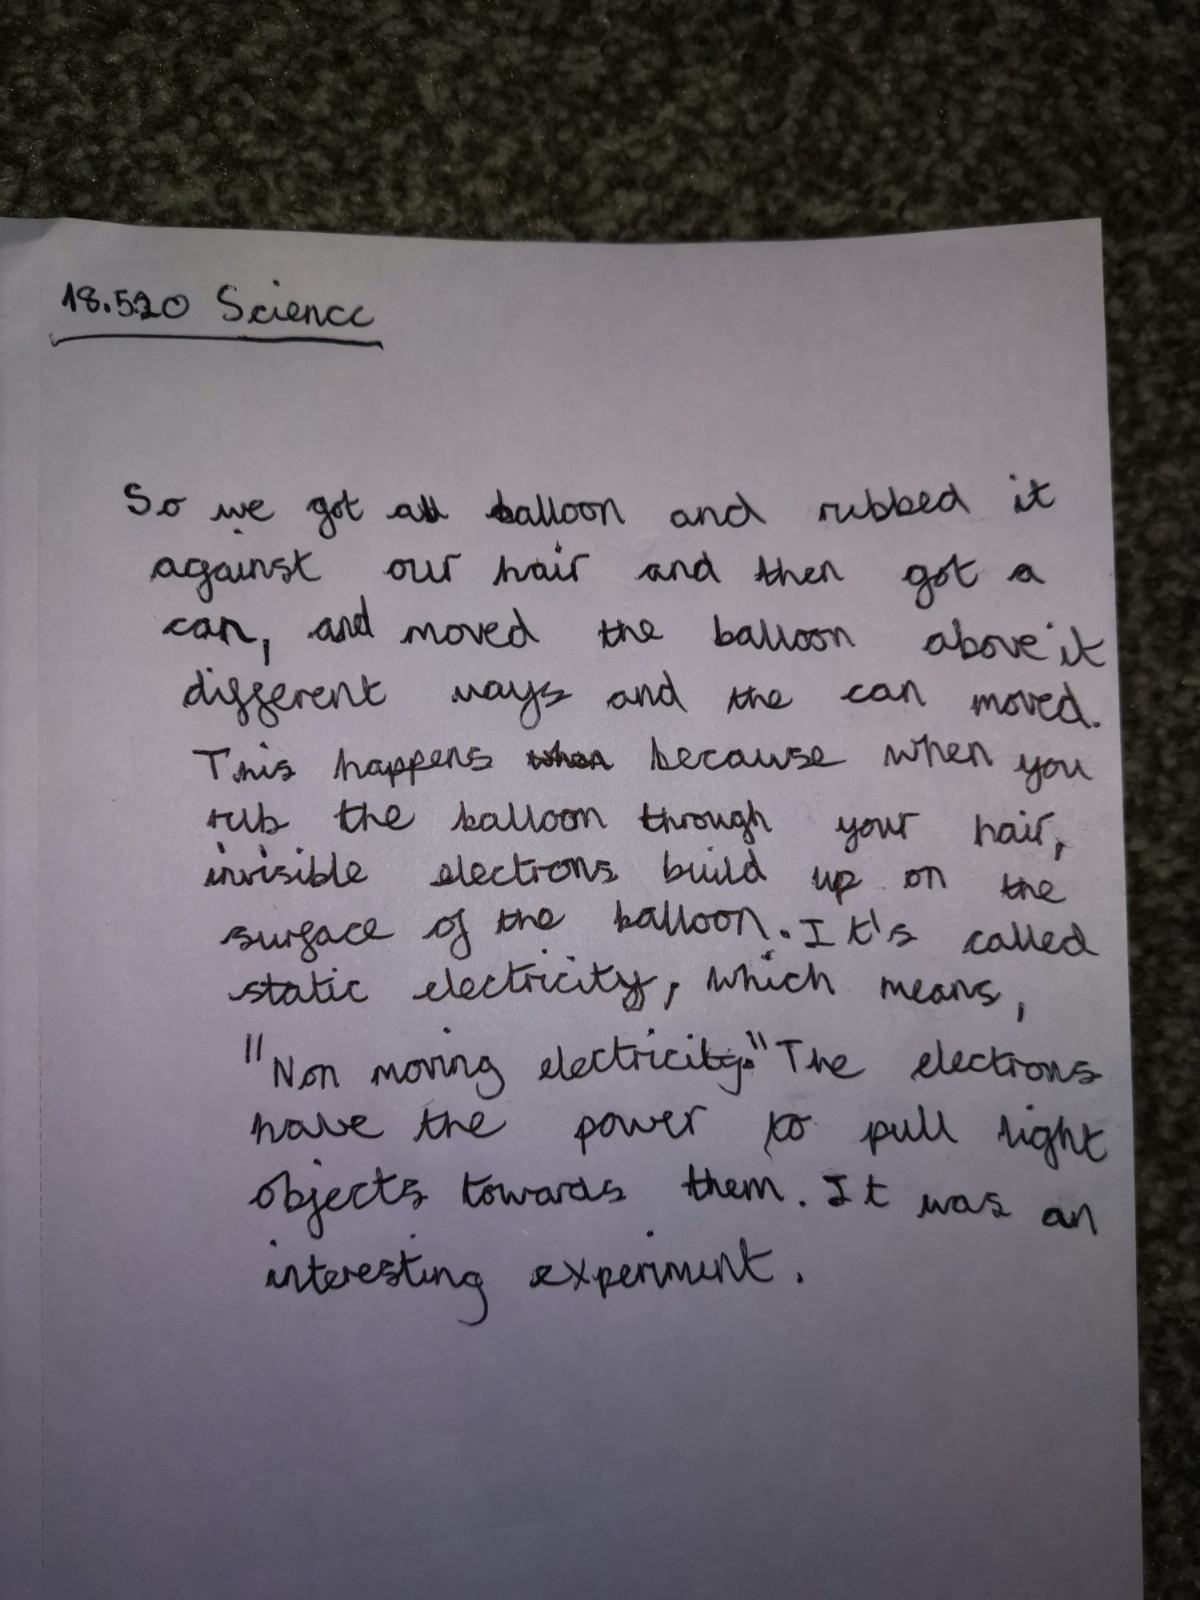 18.5.20 Science
So we got a balloon and rubbed it
against our hair and then got a
can, and moved the balloon above it
different ways and the can moved.
This happens when because when you
rub the balloon through your hair,
invisible electrons build up on the
surface of the balloon. It's called
static electricity, which means,
"Non moving electricity." The electrons
have the power to pull light
objects towards them. It was an
interesting experiment.